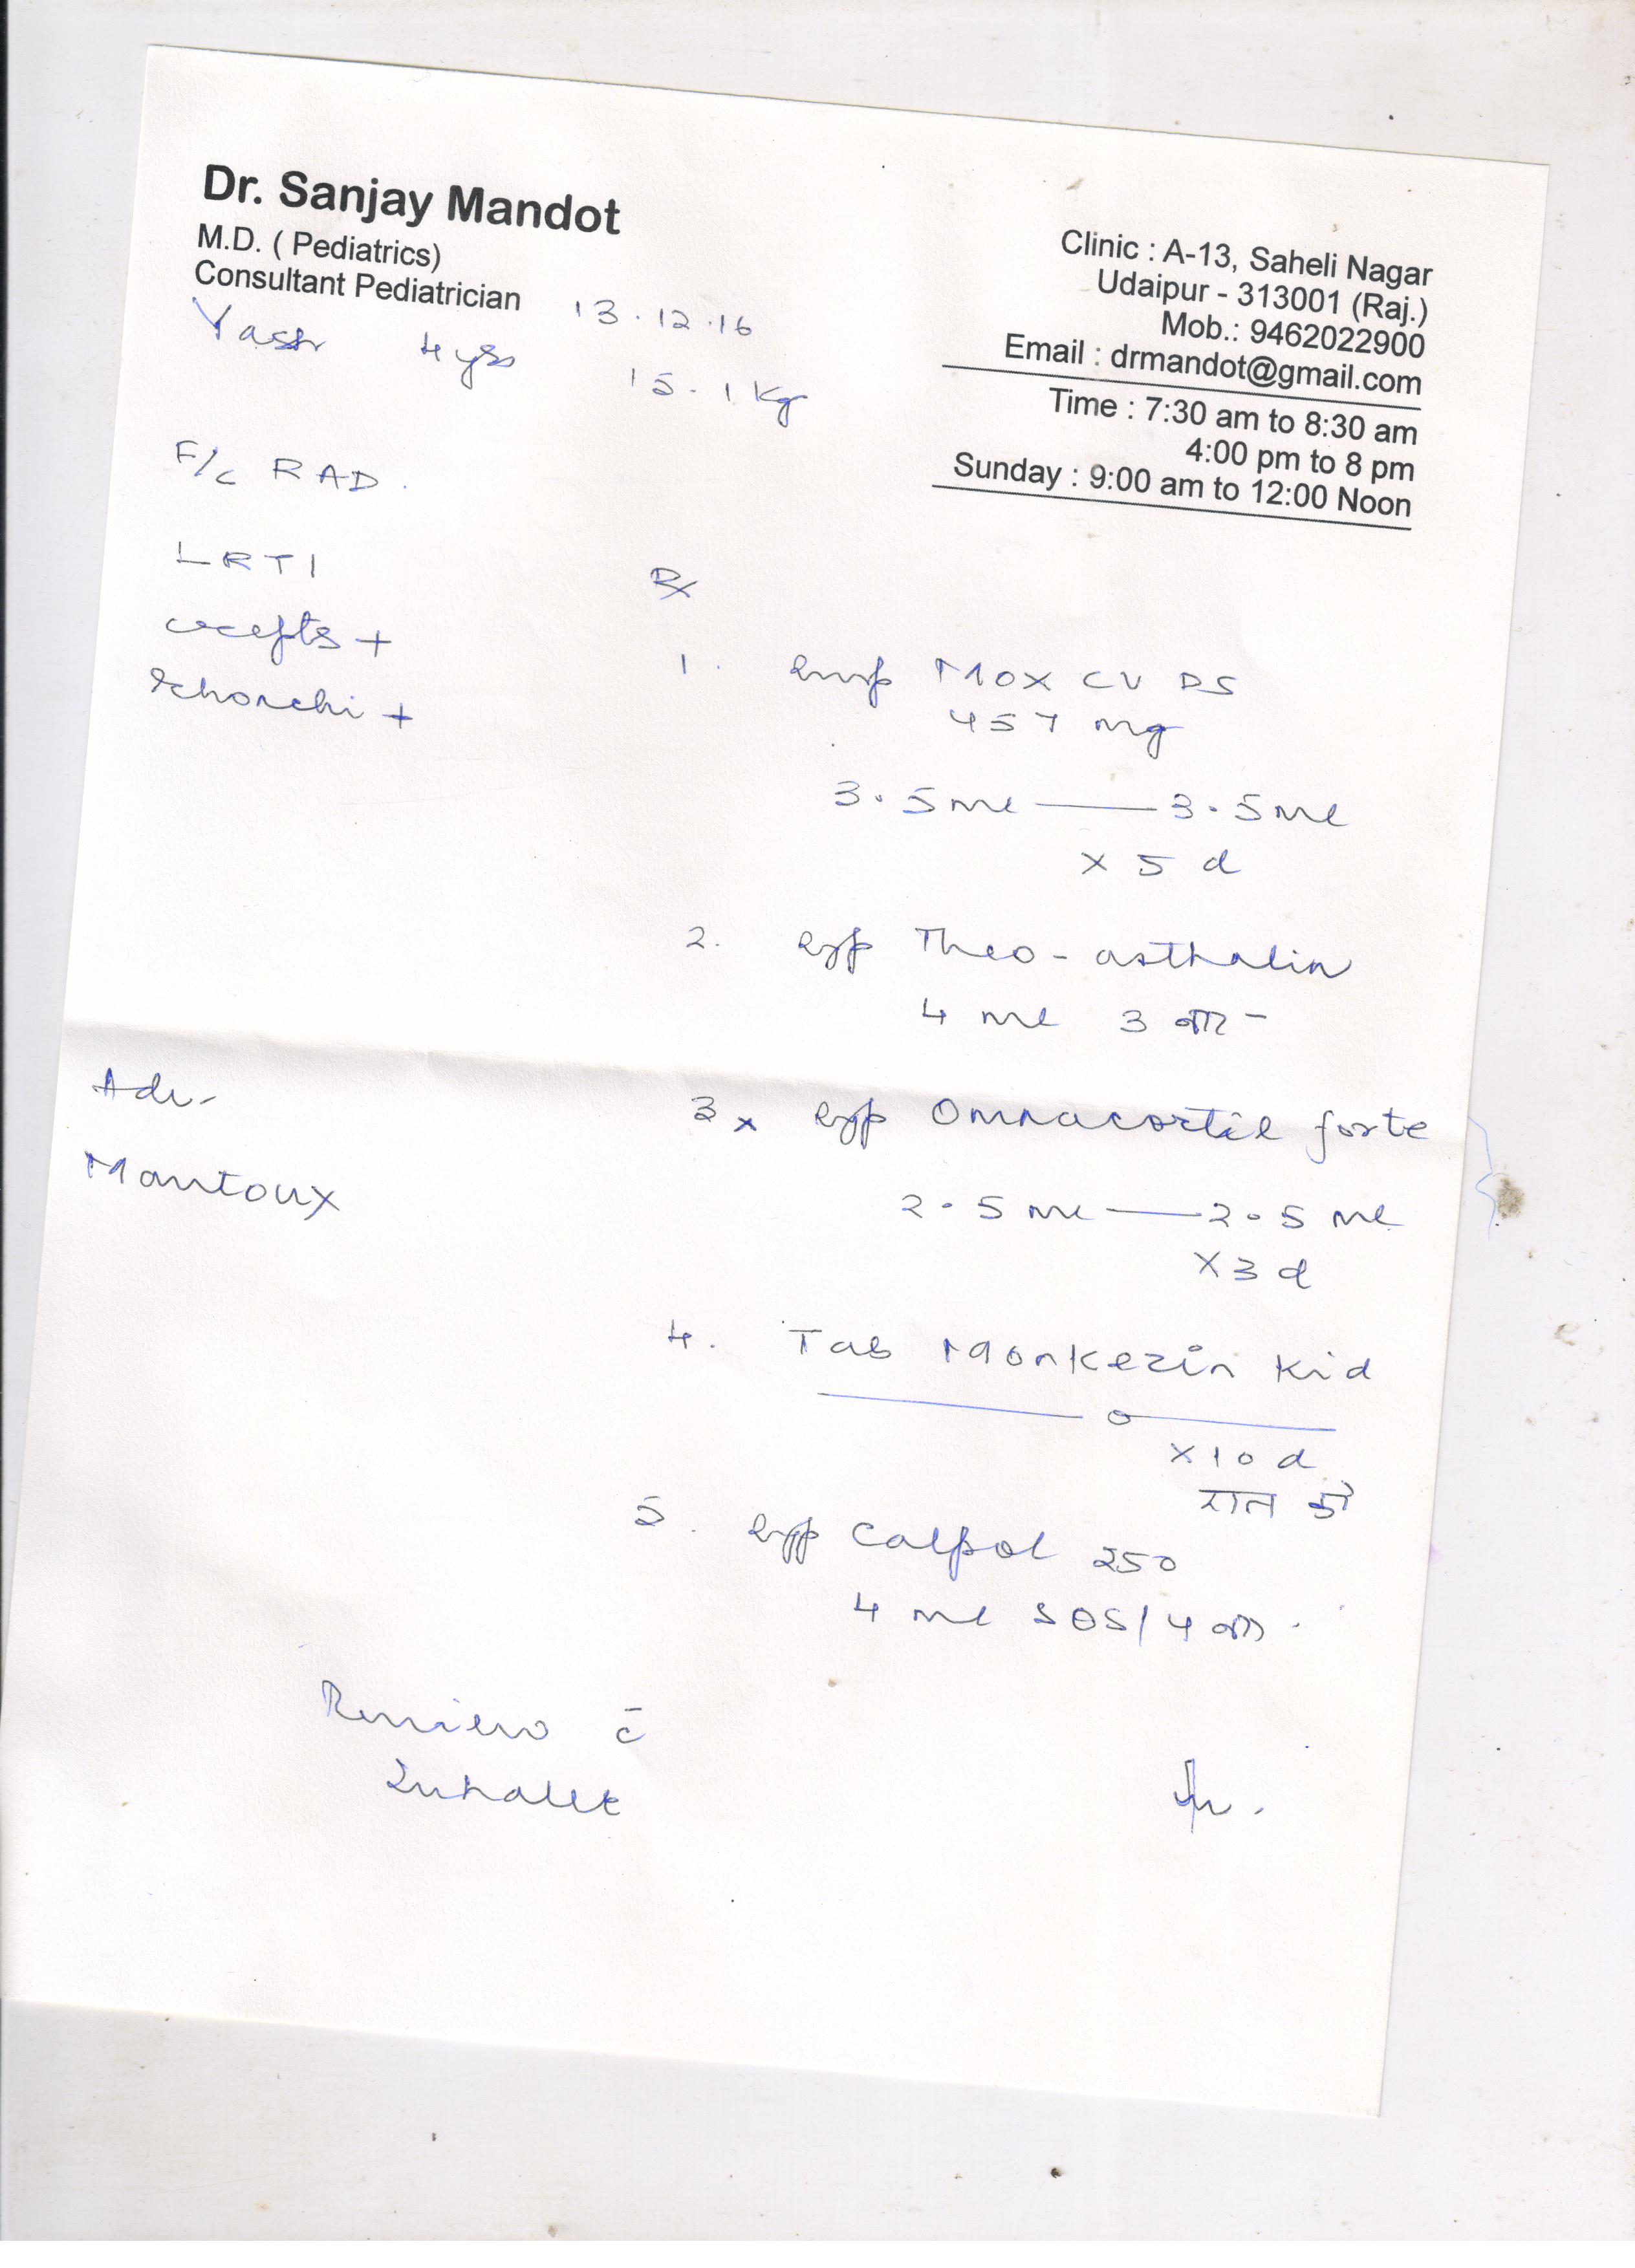 Dr. Sanjay Mandot
M.D. ( Pediatrics)
Consultant Pediatrician
Clinic : A-13, Saheli Nagar
Udaipur - 313001 (Raj.)
Mob.: 9462022900
Email : drmandot@gmail.com
Time : 7:30 am to 8:30 am
4:00 pm to 8 pm
Sunday : 9:00 am to 12:00 Noon
13.12.16
Yash 4 yrs
15.1 kg
F/c RAD.
LRTI
crepts +
rhonchi +
Rx
1. Mox CV DS
457 mg
3.5 ml — 3.5 ml
x 5 d
2. syp Theo-asthalin
4 ml 3 बार
Adv-
Mantoux
3x syp Omnacortil forte
2.5 ml — 2.5 ml
x 3 d
4. Tab Monkezin Kid
— o —
x 10 d
रात को
5. syp Calpol 250
4 ml SOS/4 बार
Review c̄